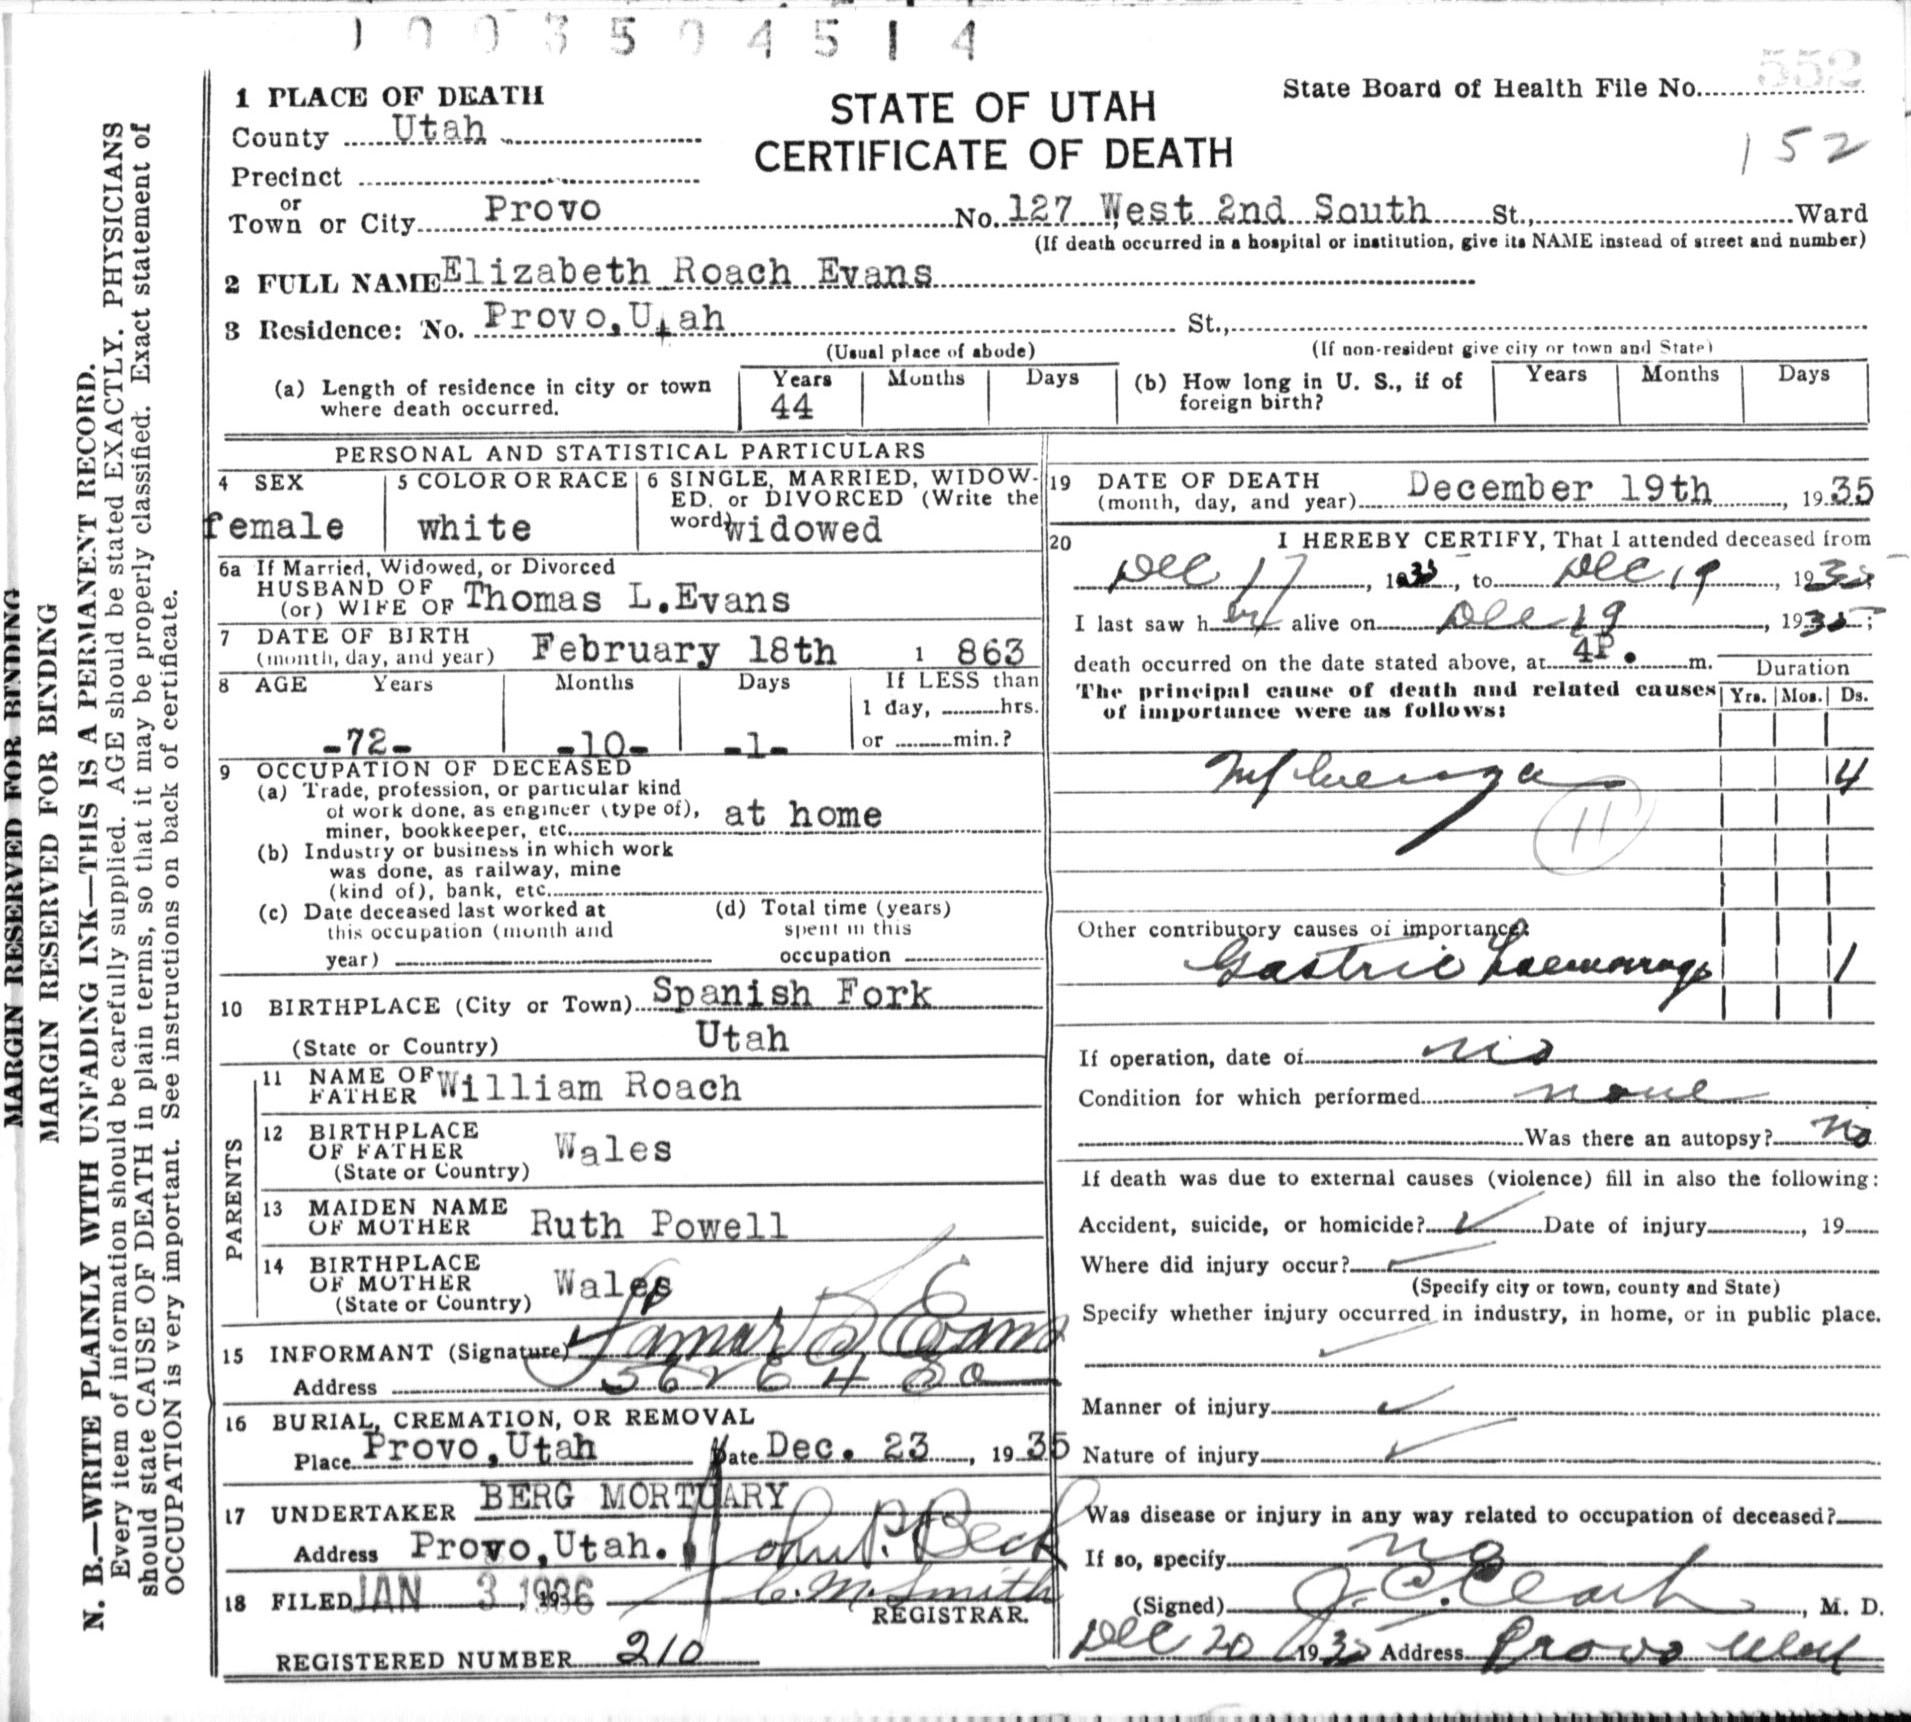 1003504514
552
State Board of Health File No.
152
STATE OF UTAH
CERTIFICATE OF DEATH
1 PLACE OF DEATH
County Utah
Precinct
or
Town or City Provo No. 127 West 2nd South St., Ward
(If death occurred in a hospital or institution, give its NAME instead of street and number)
2 FULL NAME Elizabeth Roach Evans
3 Residence: No. Provo, Utah St.,
(Usual place of abode) (If non-resident give city or town and State)
(a) Length of residence in city or town where death occurred. Years 44 Months Days
(b) How long in U. S., if of foreign birth? Years Months Days
PERSONAL AND STATISTICAL PARTICULARS
4 SEX female
5 COLOR OR RACE white
6 SINGLE, MARRIED, WIDOWED, or DIVORCED (Write the word) widowed
6a If Married, Widowed, or Divorced
HUSBAND OF
(or) WIFE OF Thomas L. Evans
7 DATE OF BIRTH
(month, day, and year) February 18th 1 863
8 AGE Years -72- Months -10- Days -1-
If LESS than
1 day, hrs.
or min.?
9 OCCUPATION OF DECEASED
(a) Trade, profession, or particular kind
of work done, as engineer (type of),
miner, bookkeeper, etc. at home
(b) Industry or business in which work
was done, as railway, mine
(kind of), bank, etc.
(c) Date deceased last worked at
this occupation (month and
year)
(d) Total time (years)
spent in this
occupation
10 BIRTHPLACE (City or Town) Spanish Fork
(State or Country) Utah
PARENTS
11 NAME OF FATHER William Roach
12 BIRTHPLACE OF FATHER
(State or Country) Wales
13 MAIDEN NAME OF MOTHER Ruth Powell
14 BIRTHPLACE OF MOTHER
(State or Country) Wales
15 INFORMANT (Signature) Lamar Evans
Address 562 E 4 So
16 BURIAL, CREMATION, OR REMOVAL
Place Provo, Utah Date Dec. 23, 1935
17 UNDERTAKER BERG MORTUARY
Address Provo, Utah. John P. Beck
18 FILED JAN 3 1936 C. M. Smith
REGISTRAR.
REGISTERED NUMBER 210
19 DATE OF DEATH
(month, day, and year) December 19th, 1935
20 I HEREBY CERTIFY, That I attended deceased from
Dec 17, 1935, to Dec 19, 1935
I last saw her alive on Dec 19, 1935;
death occurred on the date stated above, at 4P. m.
Duration
The principal cause of death and related causes
of importance were as follows: Yrs. Mos. Ds.
Influenza 4
11
Other contributory causes of importance:
Gastric haemorrage 1
If operation, date of no
Condition for which performed none
Was there an autopsy? No
If death was due to external causes (violence) fill in also the following:
Accident, suicide, or homicide? Date of injury, 19
Where did injury occur?
(Specify city or town, county and State)
Specify whether injury occurred in industry, in home, or in public place.
Manner of injury
Nature of injury
Was disease or injury in any way related to occupation of deceased?
If so, specify no
(Signed) J. C. Clark, M. D.
Dec 20 1935 Address Provo Utah
MARGIN RESERVED FOR BINDING
MARGIN RESERVED FOR BINDING
N. B.—WRITE PLAINLY WITH UNFADING INK—THIS IS A PERMANENT RECORD.
Every item of information should be carefully supplied. AGE should be stated EXACTLY. PHYSICIANS
should state CAUSE OF DEATH in plain terms, so that it may be properly classified. Exact statement of
OCCUPATION is very important. See instructions on back of certificate.